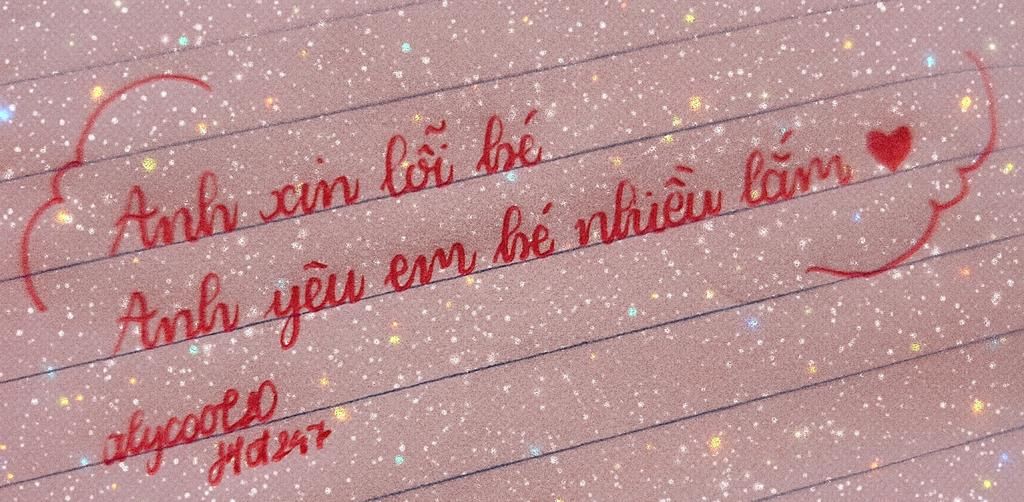 Anh xin lỗi bé
Anh yêu em bé nhiều lắm